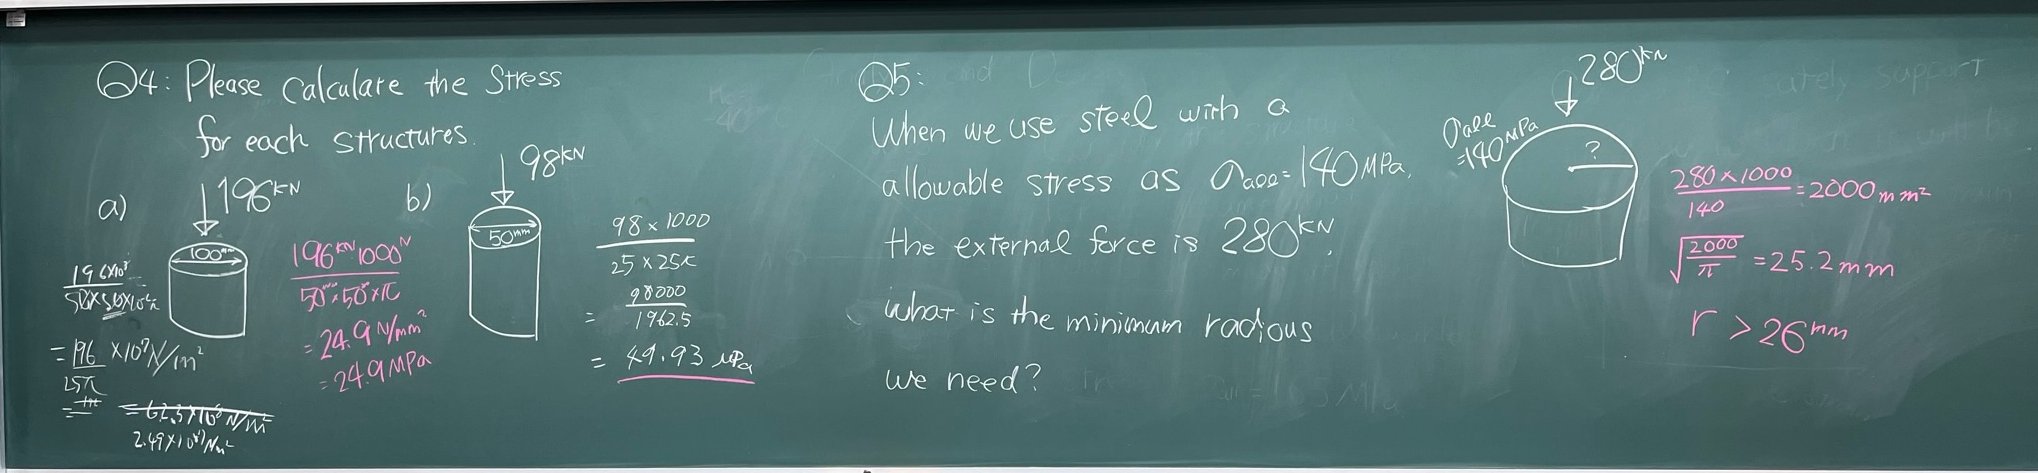 Q4: Please calculate the Stress
for each structures.
a)
196kN
100mm
196×10³
= 196 ×10⁷N/m²
25π
2.49×10⁷N/m²
196kN 1000N
50mm×50mm×π
= 24.9 N/mm²
= 24.9 MPa
b)
98kN
50mm
98 × 1000
25 × 25π
= 98000
1962.5
= 49.93 MPa
Q5:
When we use steel with a
allowable stress as σall=140MPa,
the external force is 280kN,
what is the minimum radious
we need?
280kN
σall
=140MPa
?
280×1000
140
=2000mm²
√2000/π =25.2mm
r >26mm